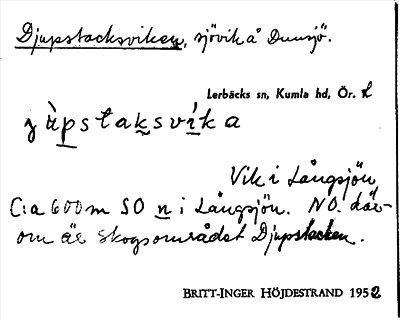 Djupstacksviken, sjövik å Dunsjö.
Lerbäcks sn, Kumla hd, Ör. l
jùpstaksvíka
Vik i Långsjön
C:a 600 m SO n i Långsjön. NO. där-
om är skogsområdet Djupstacken.
BRITT-INGER HÖJDESTRAND 1952